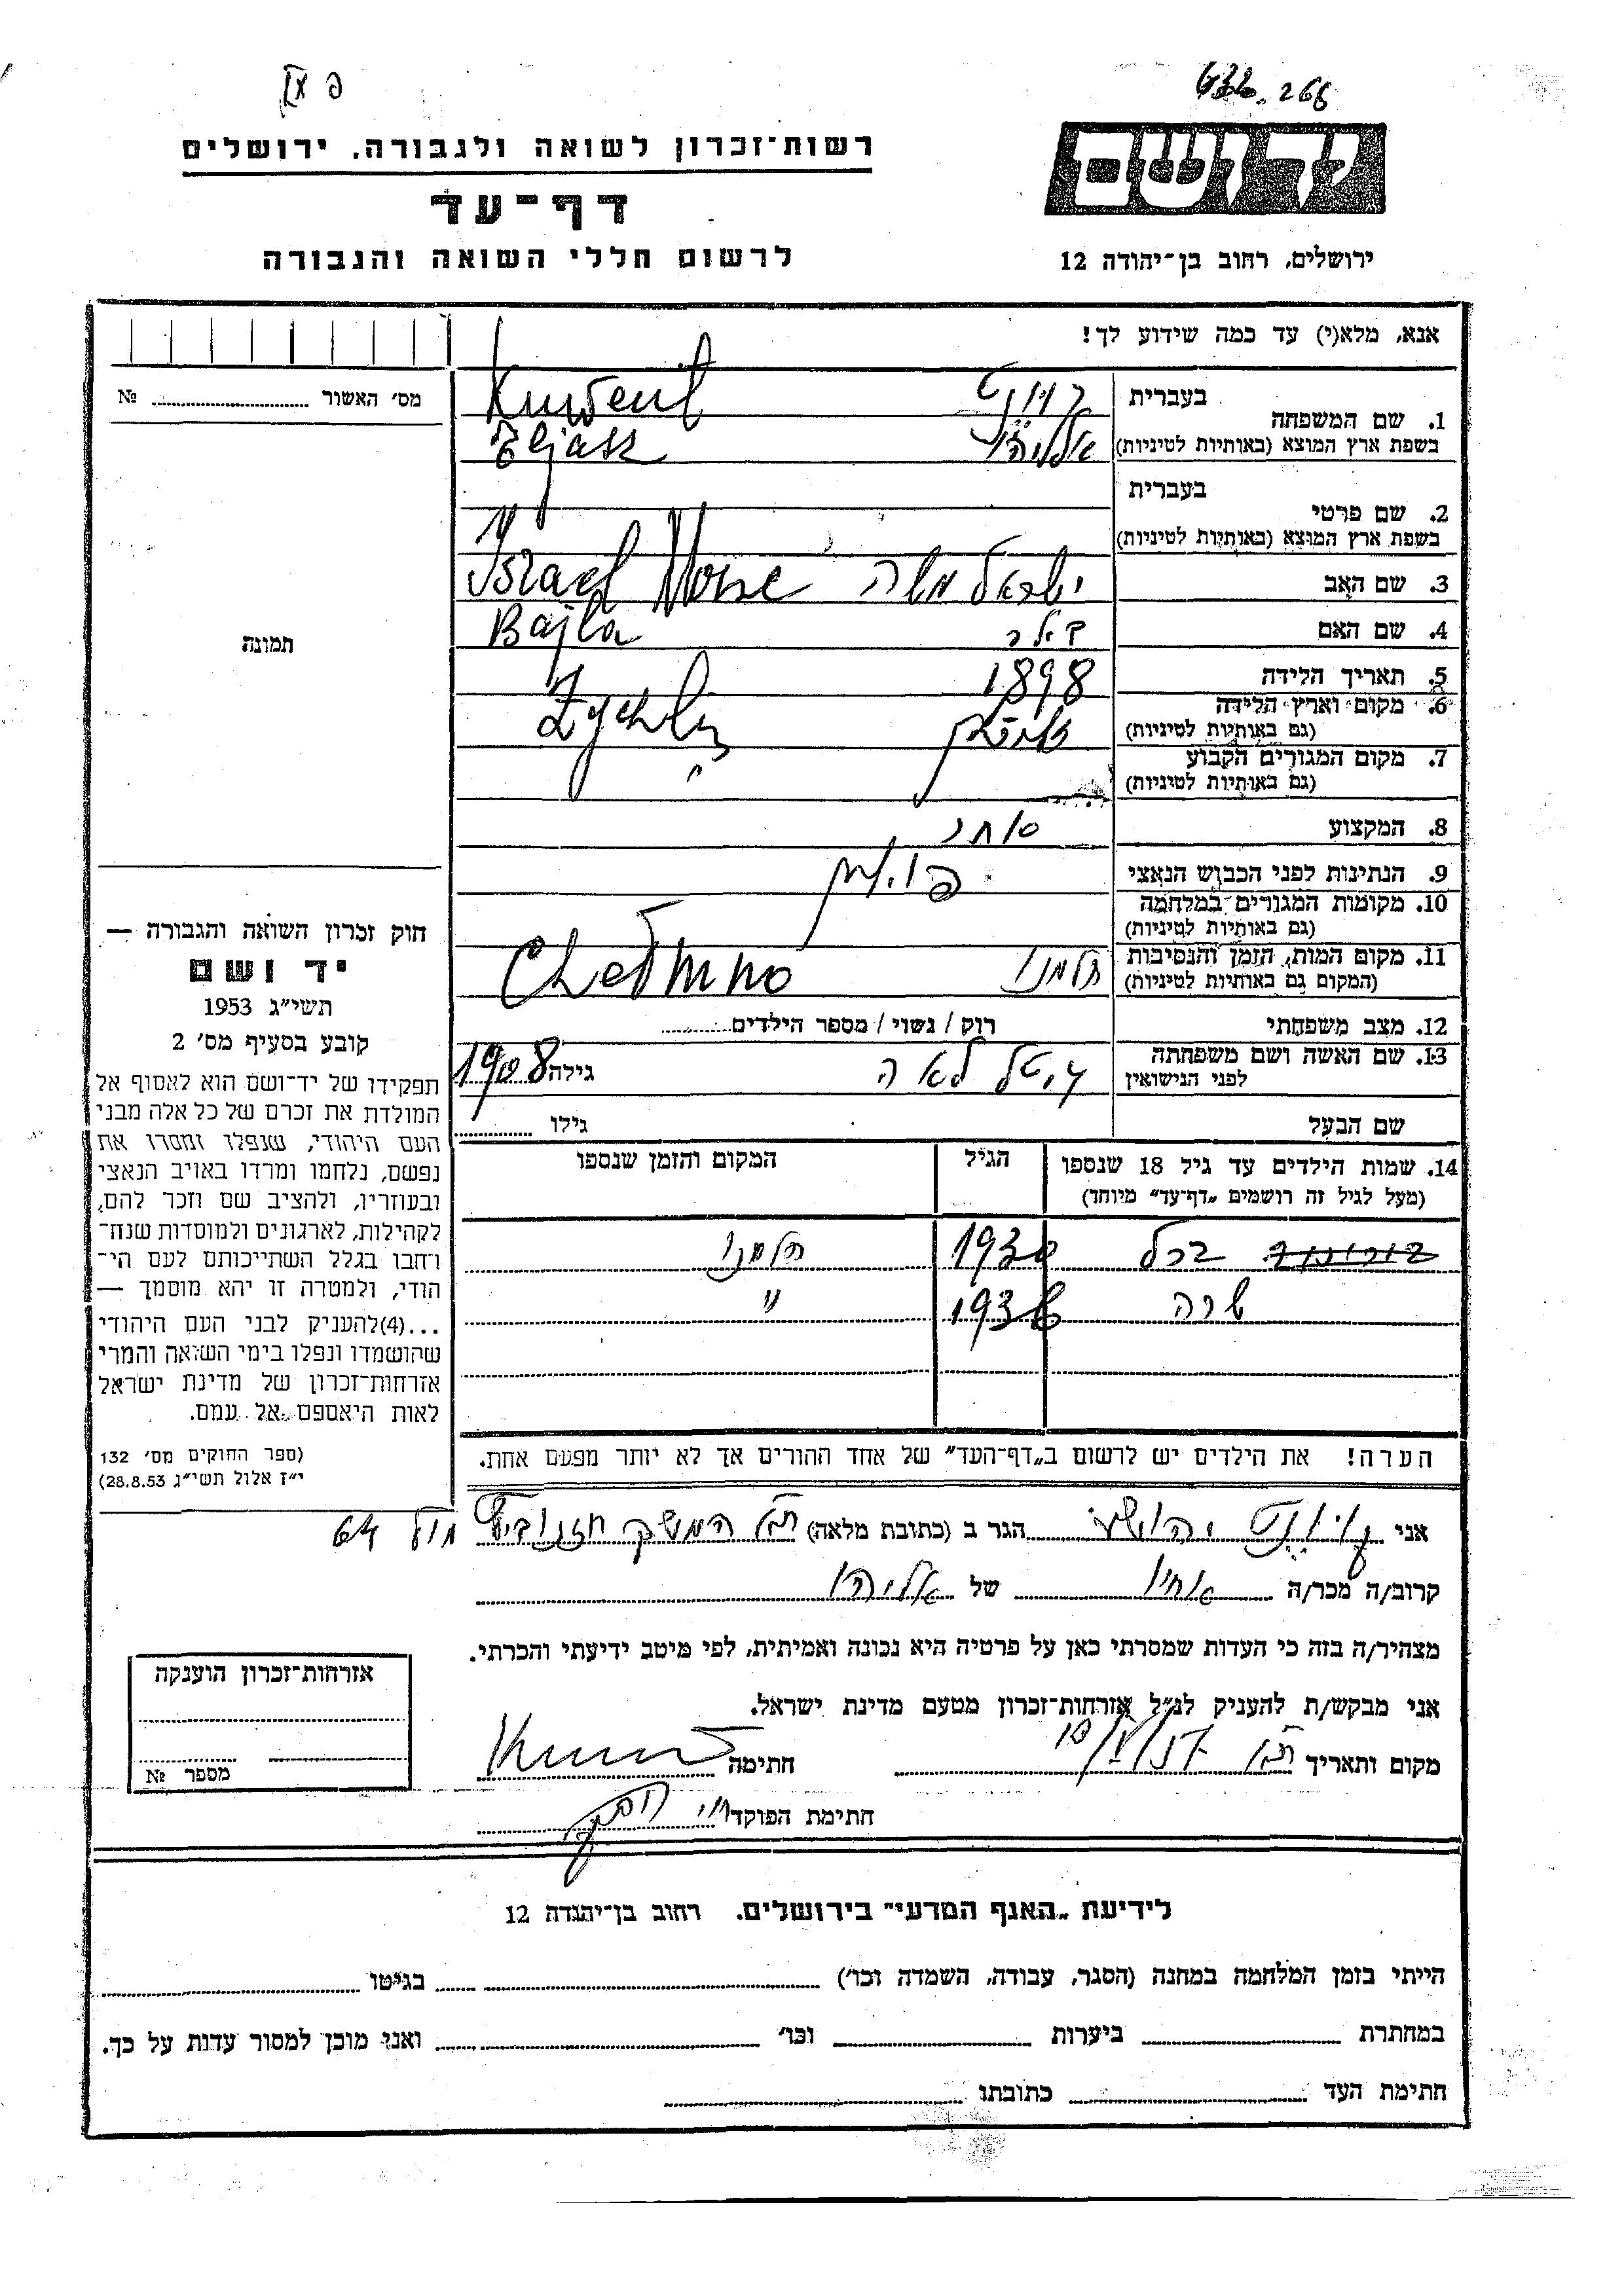 632. 268
רשות־זכרון לשואה ולגבורה. ירושלים
דף־עד
לרשום חללי השואה והגבורה
יד ושם
ירושלים, רחוב בן־יהודה 12
אנא, מלא(י) עד כמה שידוע לך!
מס׳ האשור №
1. שם המשפחה בעברית
בשפת ארץ המוצא (באותיות לטיניות)
אליהו Eljasz
2. שם פרטי בעברית
בשפת ארץ המוצא (באותיות לטיניות)
3. שם האב ישראל משה Israel
4. שם האם Bajla
5. תאריך הלידה 1898
6. מקום וארץ הלידה
(גם באותיות לטיניות) Zychlin
7. מקום המגורים הקבוע
(גם באותיות לטיניות) "
8. המקצוע סוחר
9. הנתינות לפני הכבוש הנאצי פולין
10. מקומות המגורים במלחמה
(גם באותיות לטיניות)
11. מקום המות, הזמן והנסיבות
(המקום גם באותיות לטיניות) חלמנו Chełmno
12. מצב משפחתי רוק / נשוי / מספר הילדים
13. שם האשה ושם משפחתה
לפני הנישואין לאה גילה 1908
שם הבעל גילו
14. שמות הילדים עד גיל 18 שנספו
(מעל לגיל זה רושמים „דף־עד" מיוחד)
הגיל
המקום והזמן שנספו
1930 חלמנו
שרה 1938 "
הערה! את הילדים יש לרשום ב„דף־העד" של אחד ההורים אך לא יותר מפעם אחת.
תמונה
חוק זכרון השואה והגבורה —
יד ושם
תשי״ג 1953
קובע בסעיף מס׳ 2
תפקידו של יד־ושם הוא לאסוף אל
המולדת את זכרם של כל אלה מבני
העם היהודי, שנפלו ומסרו את
נפשם, נלחמו ומרדו באויב הנאצי
ובעוזריו, ולהציב שם וזכר להם,
לקהילות, לארגונים ולמוסדות שנח־
רחבו בגלל השתייכותם לעם הי־
הודי, ולמטרה זו יהא מוסמך —
...(4)להעניק לבני העם היהודי
שהושמדו ונפלו בימי השואה והמרי
אזרחות־זכרון של מדינת ישראל
לאות היאספם אל עמם.
(ספר החוקים מס׳ 132
י״ז אלול תשי״ג 28.8.53)
אני יהושע הגר ב (כתובת מלאה) 64
קרוב/ה מכר/ה אחיו של אליהו
מצהיר/ה בזה כי העדות שמסרתי כאן על פרטיה היא נכונה ואמיתית, לפי מיטב ידיעתי והכרתי.
אני מבקש/ת להעניק לנ״ל אזרחות־זכרון מטעם מדינת ישראל.
מקום ותאריך חתימה
חתימת הפוקד
אזרחות־זכרון הוענקה
מספר №
לידיעת „האגף המדעי" בירושלים. רחוב בן־יהודה 12
הייתי בזמן המלחמה במחנה (הסגר, עבודה, השמדה וכו׳) בגיטו
במחתרת ביערות וכו׳ ואני מוכן למסור עדות על כך.
חתימת העד כתובתו